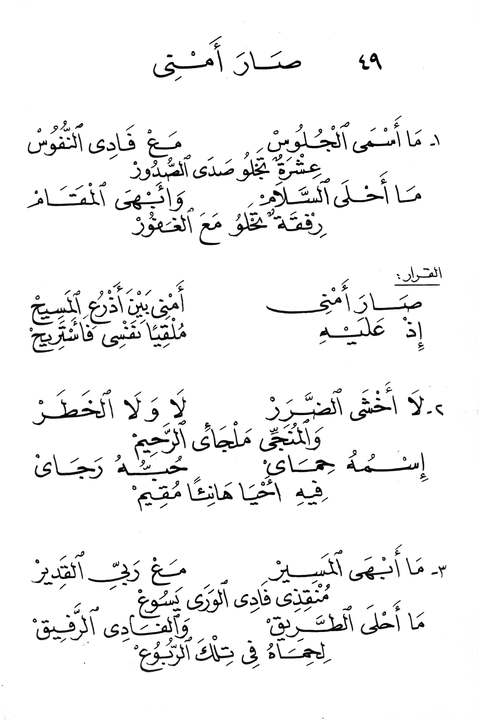 ٤٩ صَارَ أَمْنِي
١ـ مَا أَسْمَى ٱلْجُلُوسْ مَعْ فَادِي ٱلنُّفُوسْ
عِشْرَةٌ تَجْلُو صَدَى ٱلصُّدُورْ
مَا أَحْلَى ٱلسَّلَامْ وَأَبْهَى ٱلْمَقَامْ
رِفْقَةٌ تَحْلُو مَعَ ٱلْغَفُورْ
القرار:
صَارَ أَمْنِي أَمْنِي بَيْنَ أَذْرُعِ ٱلْمَسِيحْ
إِذْ عَلَيْهِ مُلْقِيًا نَفْسِي فَأَسْتَرِيحْ
٢ـ لَا أَخْشَى ٱلضَّرَرْ لَا وَلَا ٱلْخَطَرْ
وَٱلْمُنَجِّي مَلْجَأَيْ ٱلرَّحِيمْ
إِسْمُهُ حِمَايْ حُبُّهُ رَجَايْ
فِيهِ أَحْيَا هَانِئًا مُقِيمْ
٣ـ مَا أَبْهَى ٱلْمَسِيرْ مَعْ رَبِّي ٱلْقَدِيرْ
مُنْقِذِي فَادِي ٱلْوَرَى يَسُوعْ
مَا أَحْلَى ٱلطَّرِيقْ وَٱلْفَادِي ٱلرَّفِيقْ
لِحِمَاهُ فِي تِلْكَ ٱلرُّبُوعْ